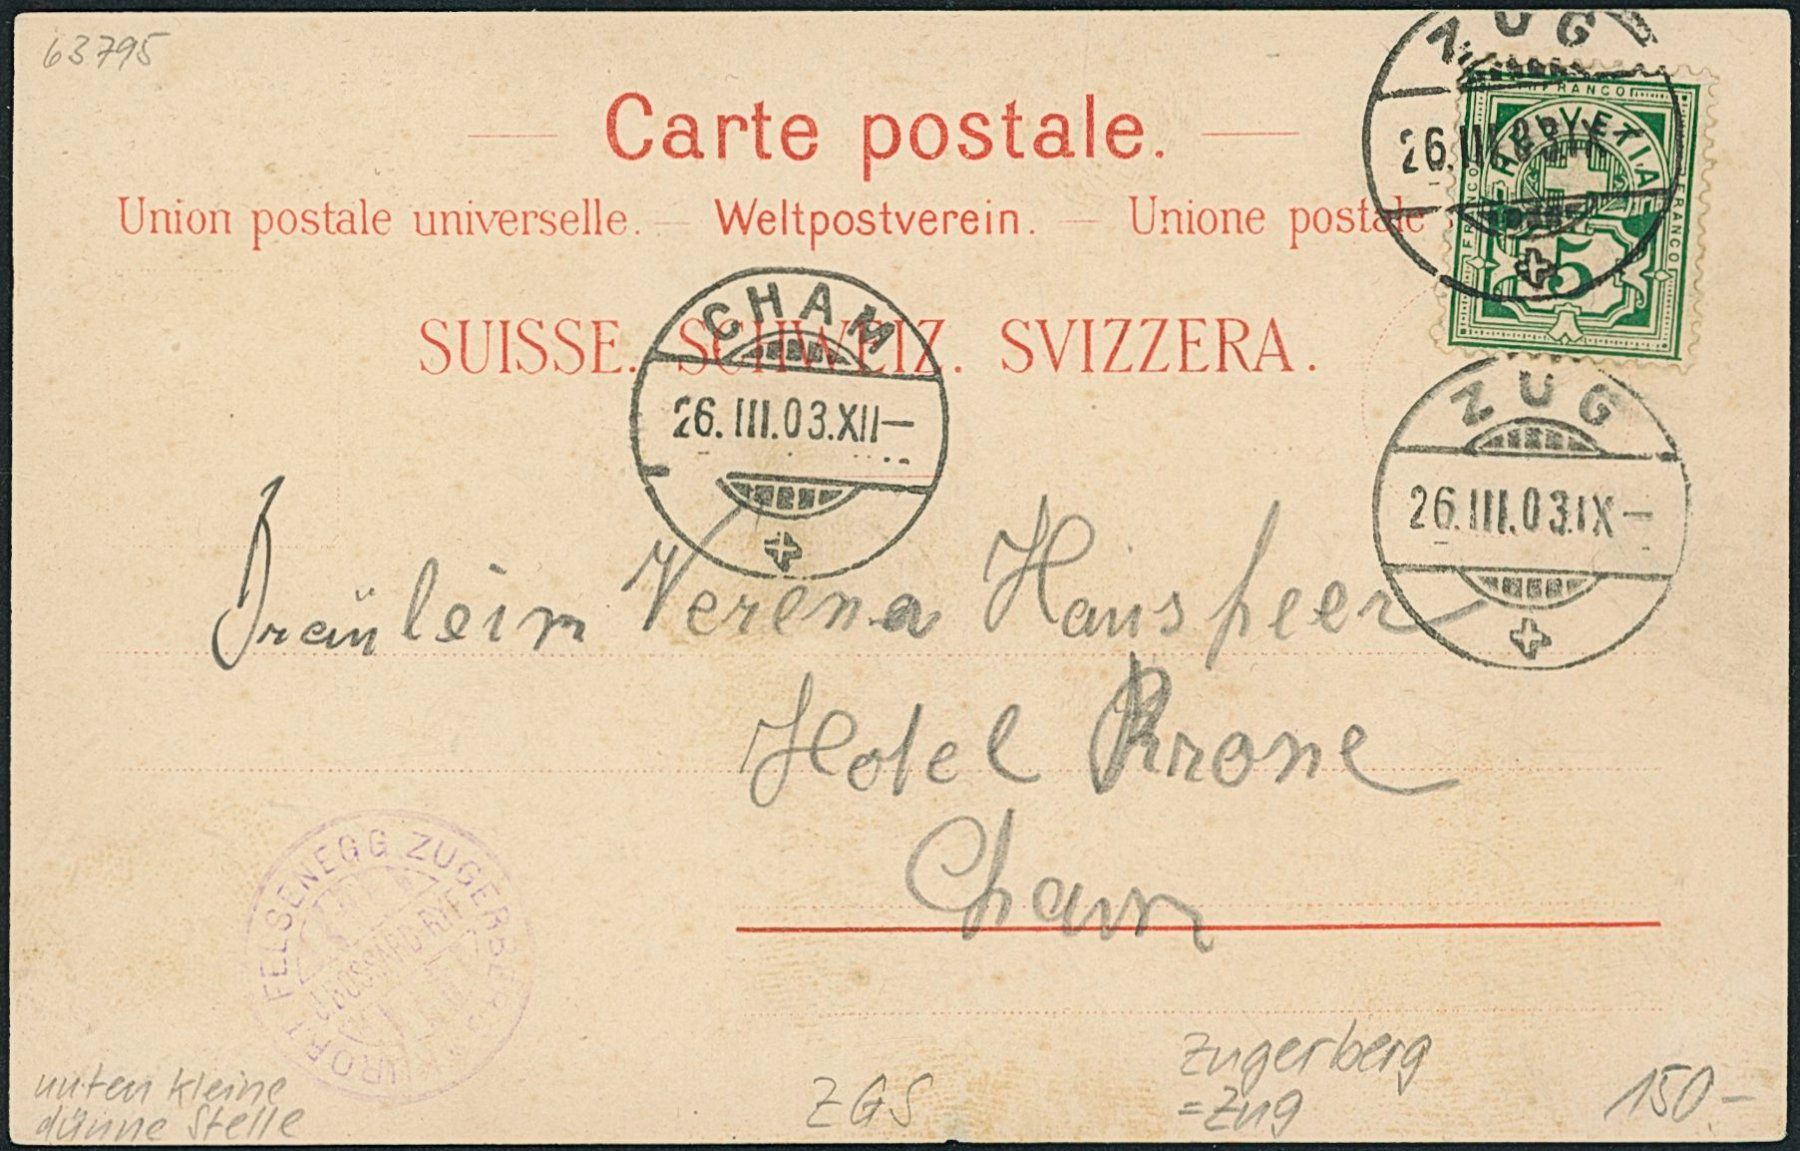 63795
Carte postale.
Union postale universelle. — Weltpostverein. — Unione postale
SUISSE. SCHWEIZ. SVIZZERA.
ZUG
26.III
FRANCO
HELVETIA
FRANCO
FRANCO
5
CHAM
26.III.03.XII—
ZUG
26.III.03.IX—
Fräulein Verena Hausheer
Hotel Krone
Cham
KURORT FELSENEGG ZUGERBERG
BOSSARD-RYF
unten kleine
dünne Stelle
ZGS
Zugerberg
=Zug
150—